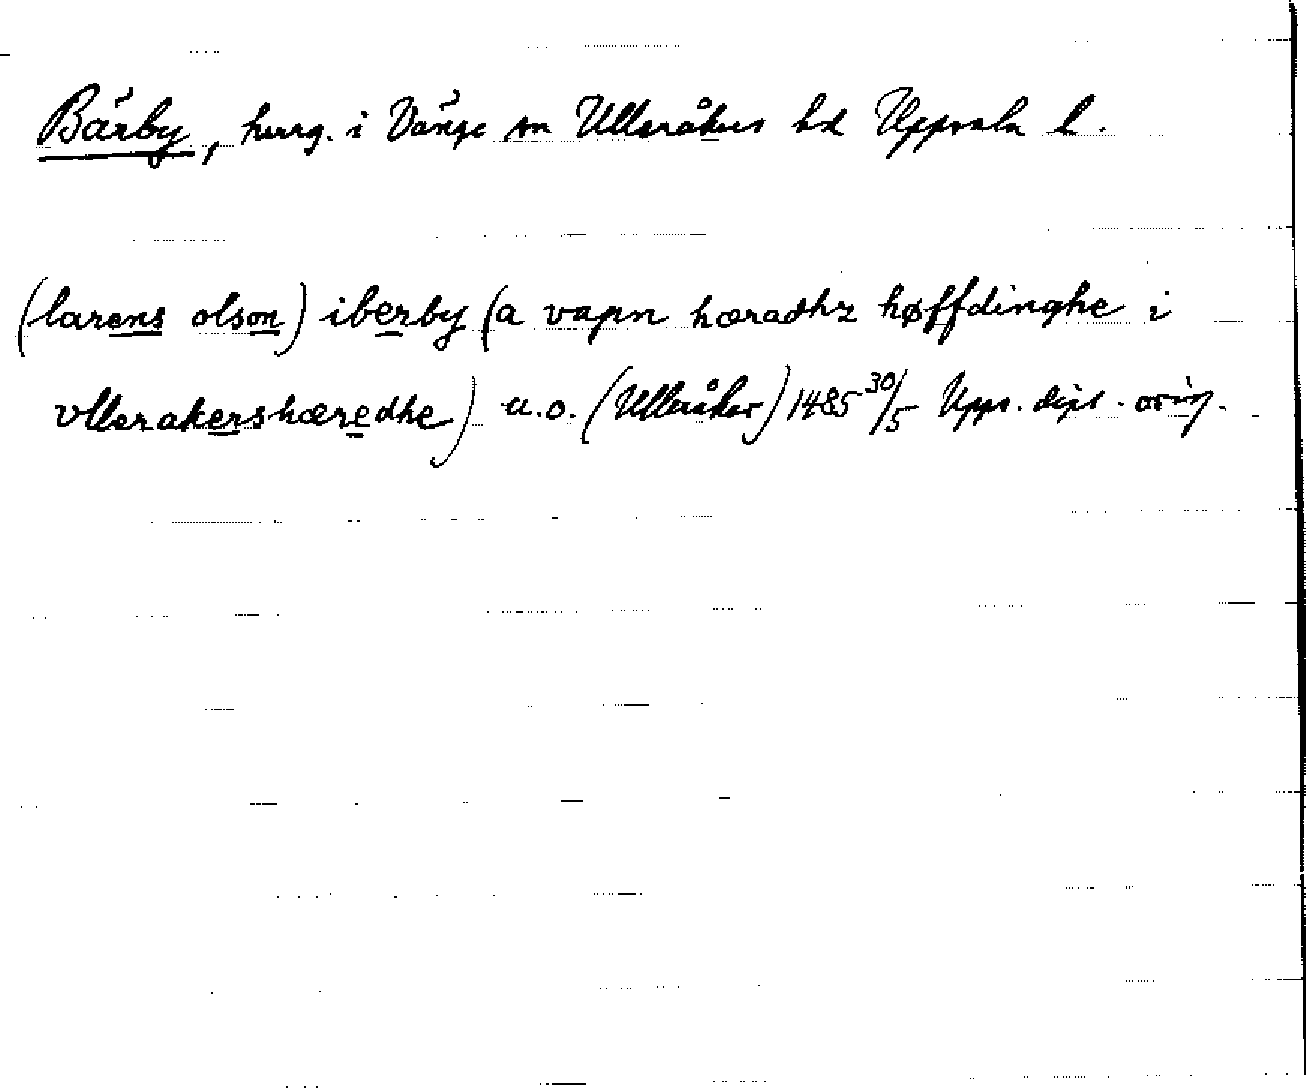 Bärby, herrg. i Vänge sn Ulleråkers hd Uppsala l.
(larens olson) iberby (a vapn hæradhz høffdinghe i
vllerakershæredhe) u.o. (Ulleråker) 1485 30/5 Upps. dipl. orig.